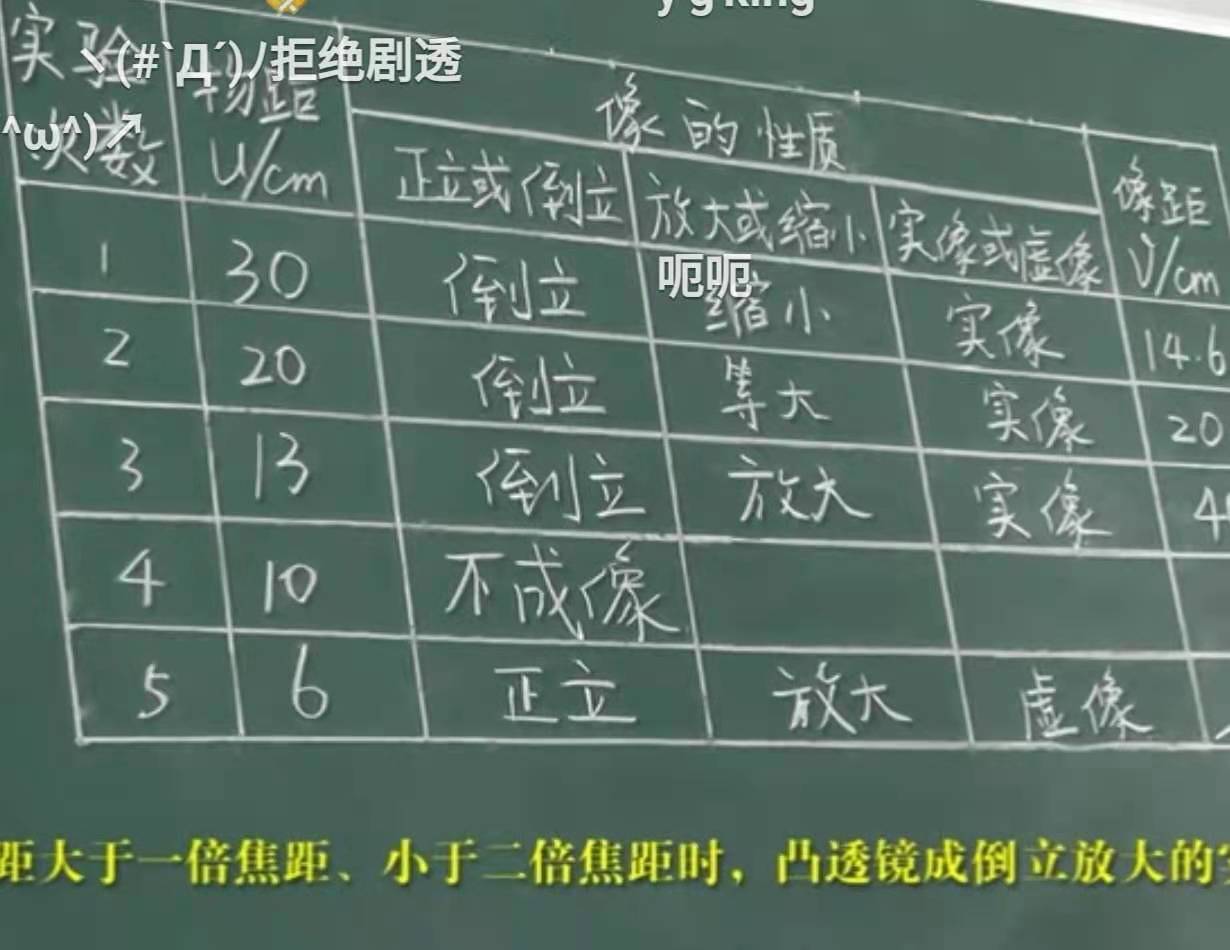 y g King
ヽ(#`Д´)ﾉ拒绝剧透
^ω^)↗
实验次数 物距 U/cm 像的性质 像距 V/cm
正立或倒立 放大或缩小 实像或虚像
呃呃
1 30 倒立 缩小 实像 14.6
2 20 倒立 等大 实像 20
3 13 倒立 放大 实像 4
4 10 不成像
5 6 正立 放大 虚像
距大于一倍焦距、小于二倍焦距时，凸透镜成倒立放大的